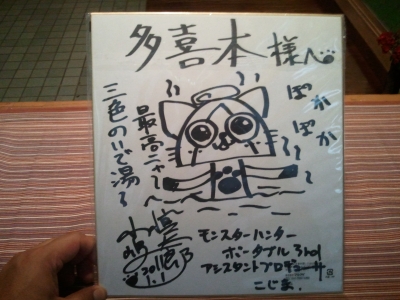 多喜本様へ
ぽか
ぽか
最高ニャ〜
三色のいで湯〜
モンスターハンター
ポータブル3rd
アシスタントプロデューサ
こじま.
2011
1.1